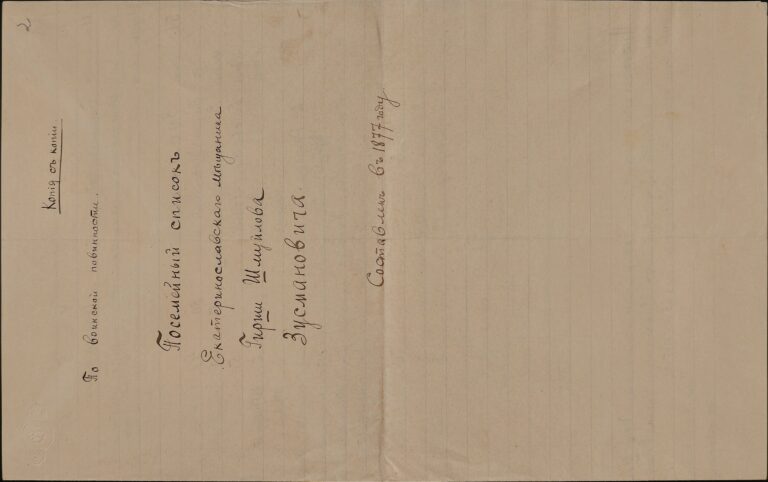 2
Копія съ копіи
По воинской повинности.
Посемейный списокъ
Екатеринославскаго мѣщанина
Гирши Шмуйлова
Зусмановича
Составленъ въ 1877 году